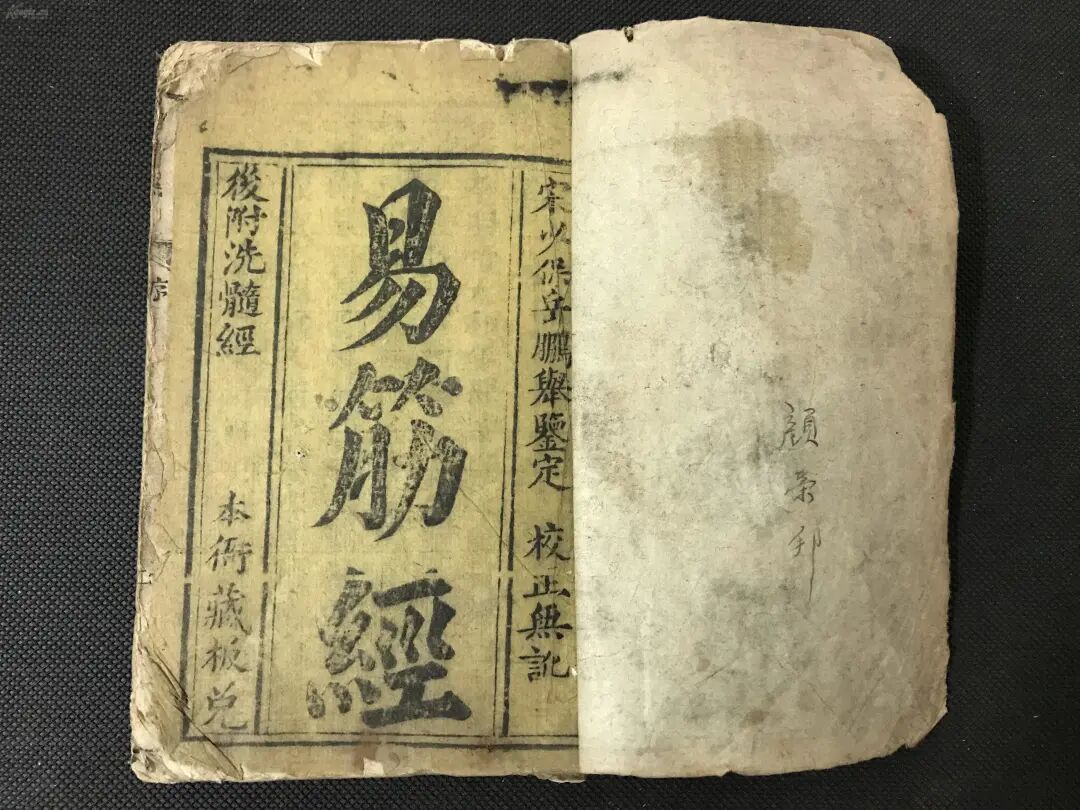 顧榮邦
宋少保岳鵬舉鑒定 校正無訛
易筋經
後附洗髓經 本衙藏板兌
序